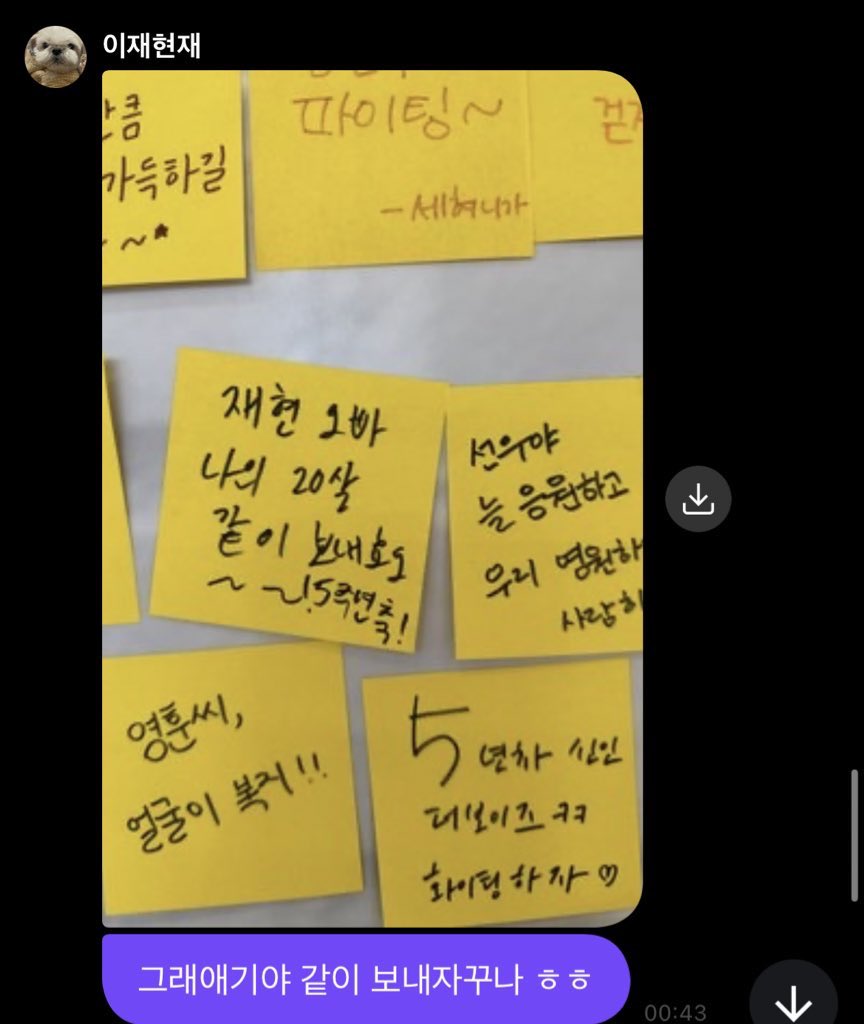 이재현재
만큼
파이팅~
가득하길
~~*
-세혀니가
재현 오빠
나의 20살
같이 보내효오
~ ~!5주년 축!
선우야
늘 응원하고
우리 영원하
사랑하
영훈씨,
얼굴이 복지!!
5년차 신인
더보이즈 ㅋㅋ
화이팅하자♡
그래애기야 같이 보내자꾸나 ㅎㅎ
00:43